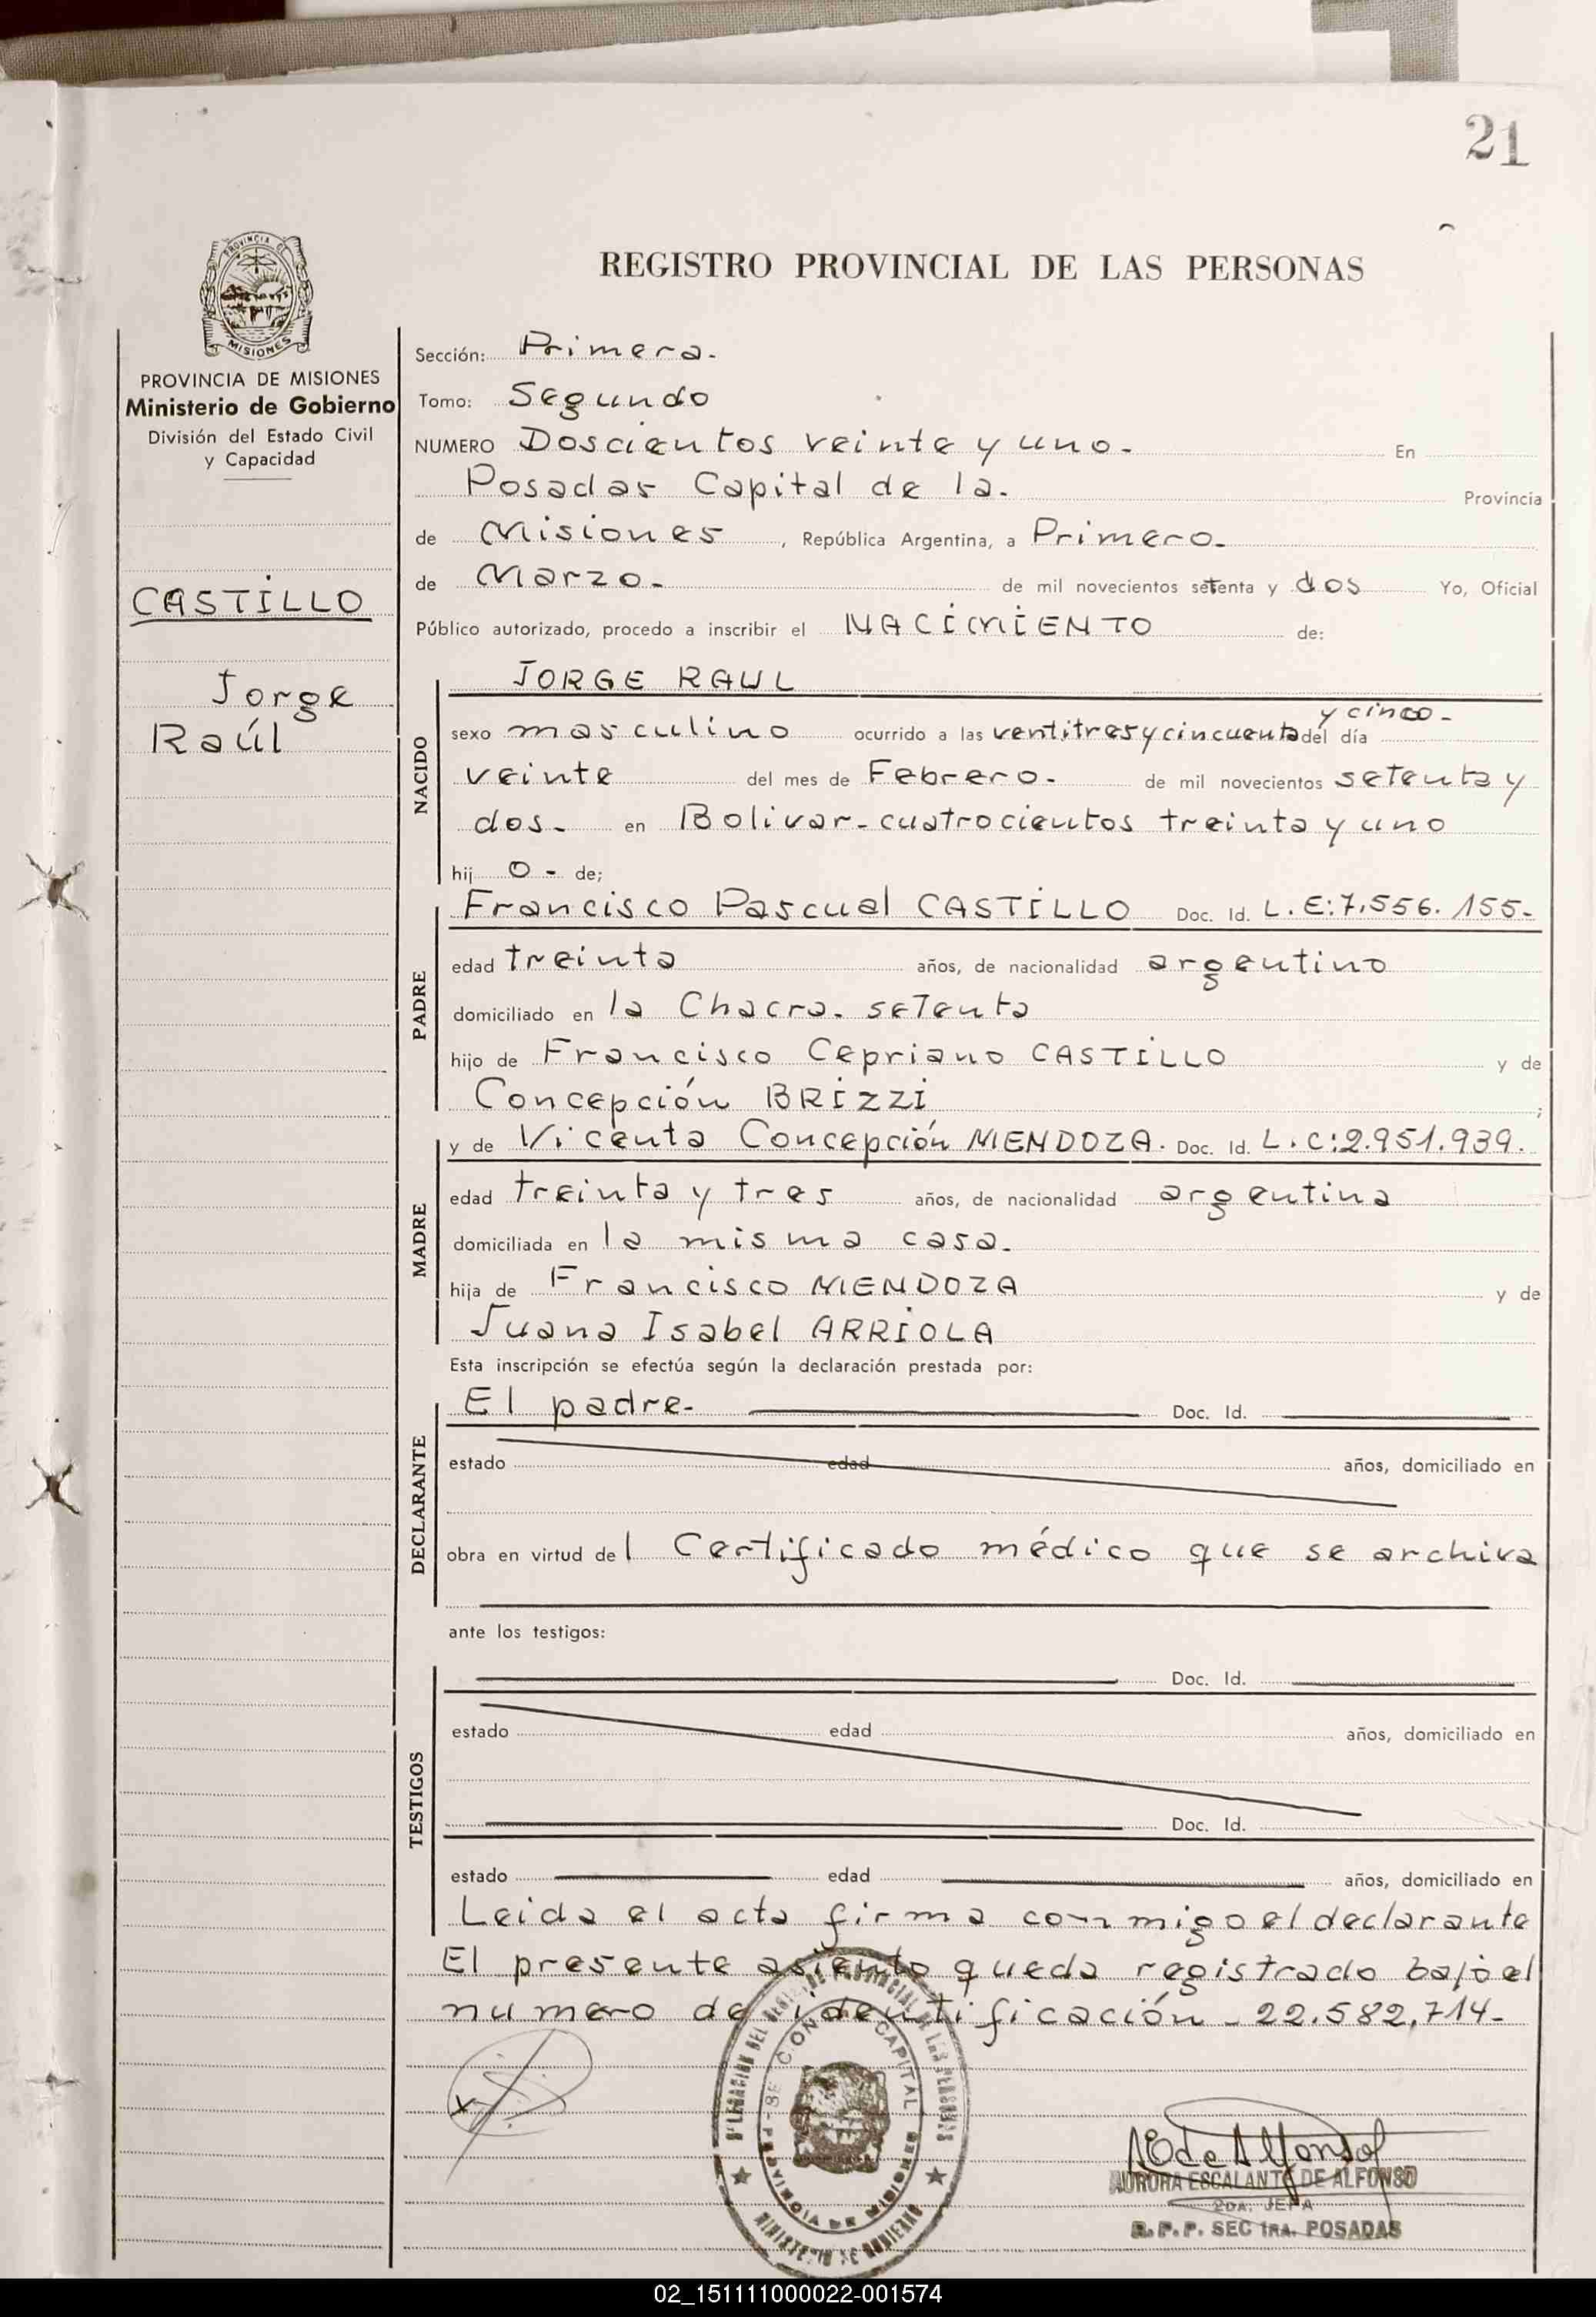 21
PROVINCIA DE
MISIONES
REGISTRO PROVINCIAL DE LAS PERSONAS
PROVINCIA DE MISIONES
Ministerio de Gobierno
División del Estado Civil
y Capacidad
CASTILLO
Jorge
Raúl
Sección: Primera.
Tomo: Segundo
NUMERO Doscientos veinte y uno. En
Posadas Capital de la. Provincia
de Misiones, República Argentina, a Primero.
de Marzo. de mil novecientos setenta y dos Yo, Oficial
Público autorizado, procedo a inscribir el NACIMIENTO de:
NACIDO
JORGE RAUL
y cinco-
sexo masculino ocurrido a las ventitres y cincuenta del día
veinte del mes de Febrero. de mil novecientos setenta y
dos. en Bolivar-cuatrocientos treinta y uno
hij o - de;
PADRE
Francisco Pascual CASTILLO Doc. Id. L.E:7.556.155-
edad treinta años, de nacionalidad argentino
domiciliado en la Chacra. setenta
hijo de Francisco Cepriano CASTILLO y de
Concepción BRIZZI ;
MADRE
y de Vicenta Concepción MENDOZA. Doc. Id. L.C:2.951.939.
edad treinta y tres años, de nacionalidad argentina
domiciliada en la misma casa.
hija de Francisco MENDOZA y de
Juana Isabel ARRIOLA
Esta inscripción se efectúa según la declaración prestada por:
DECLARANTE
El padre- Doc. Id.
estado edad años, domiciliado en
obra en virtud del Certificado médico que se archiva
ante los testigos:
TESTIGOS
Doc. Id.
estado edad años, domiciliado en
Doc. Id.
estado edad años, domiciliado en
Leida el acta firma conmigo el declarante
El presente asiento queda registrado bajo el
numero de identificación - 22.582.714-
SECCION CAPITAL
PROVINCIA DE MISIONES
MINISTERIO DE GOBIERNO
AE de Alfonso
AURORA ESCALANTE DE ALFONSO
2DA. JEFA
R.P.P. SEC 1RA. POSADAS
02_151111000022-001574